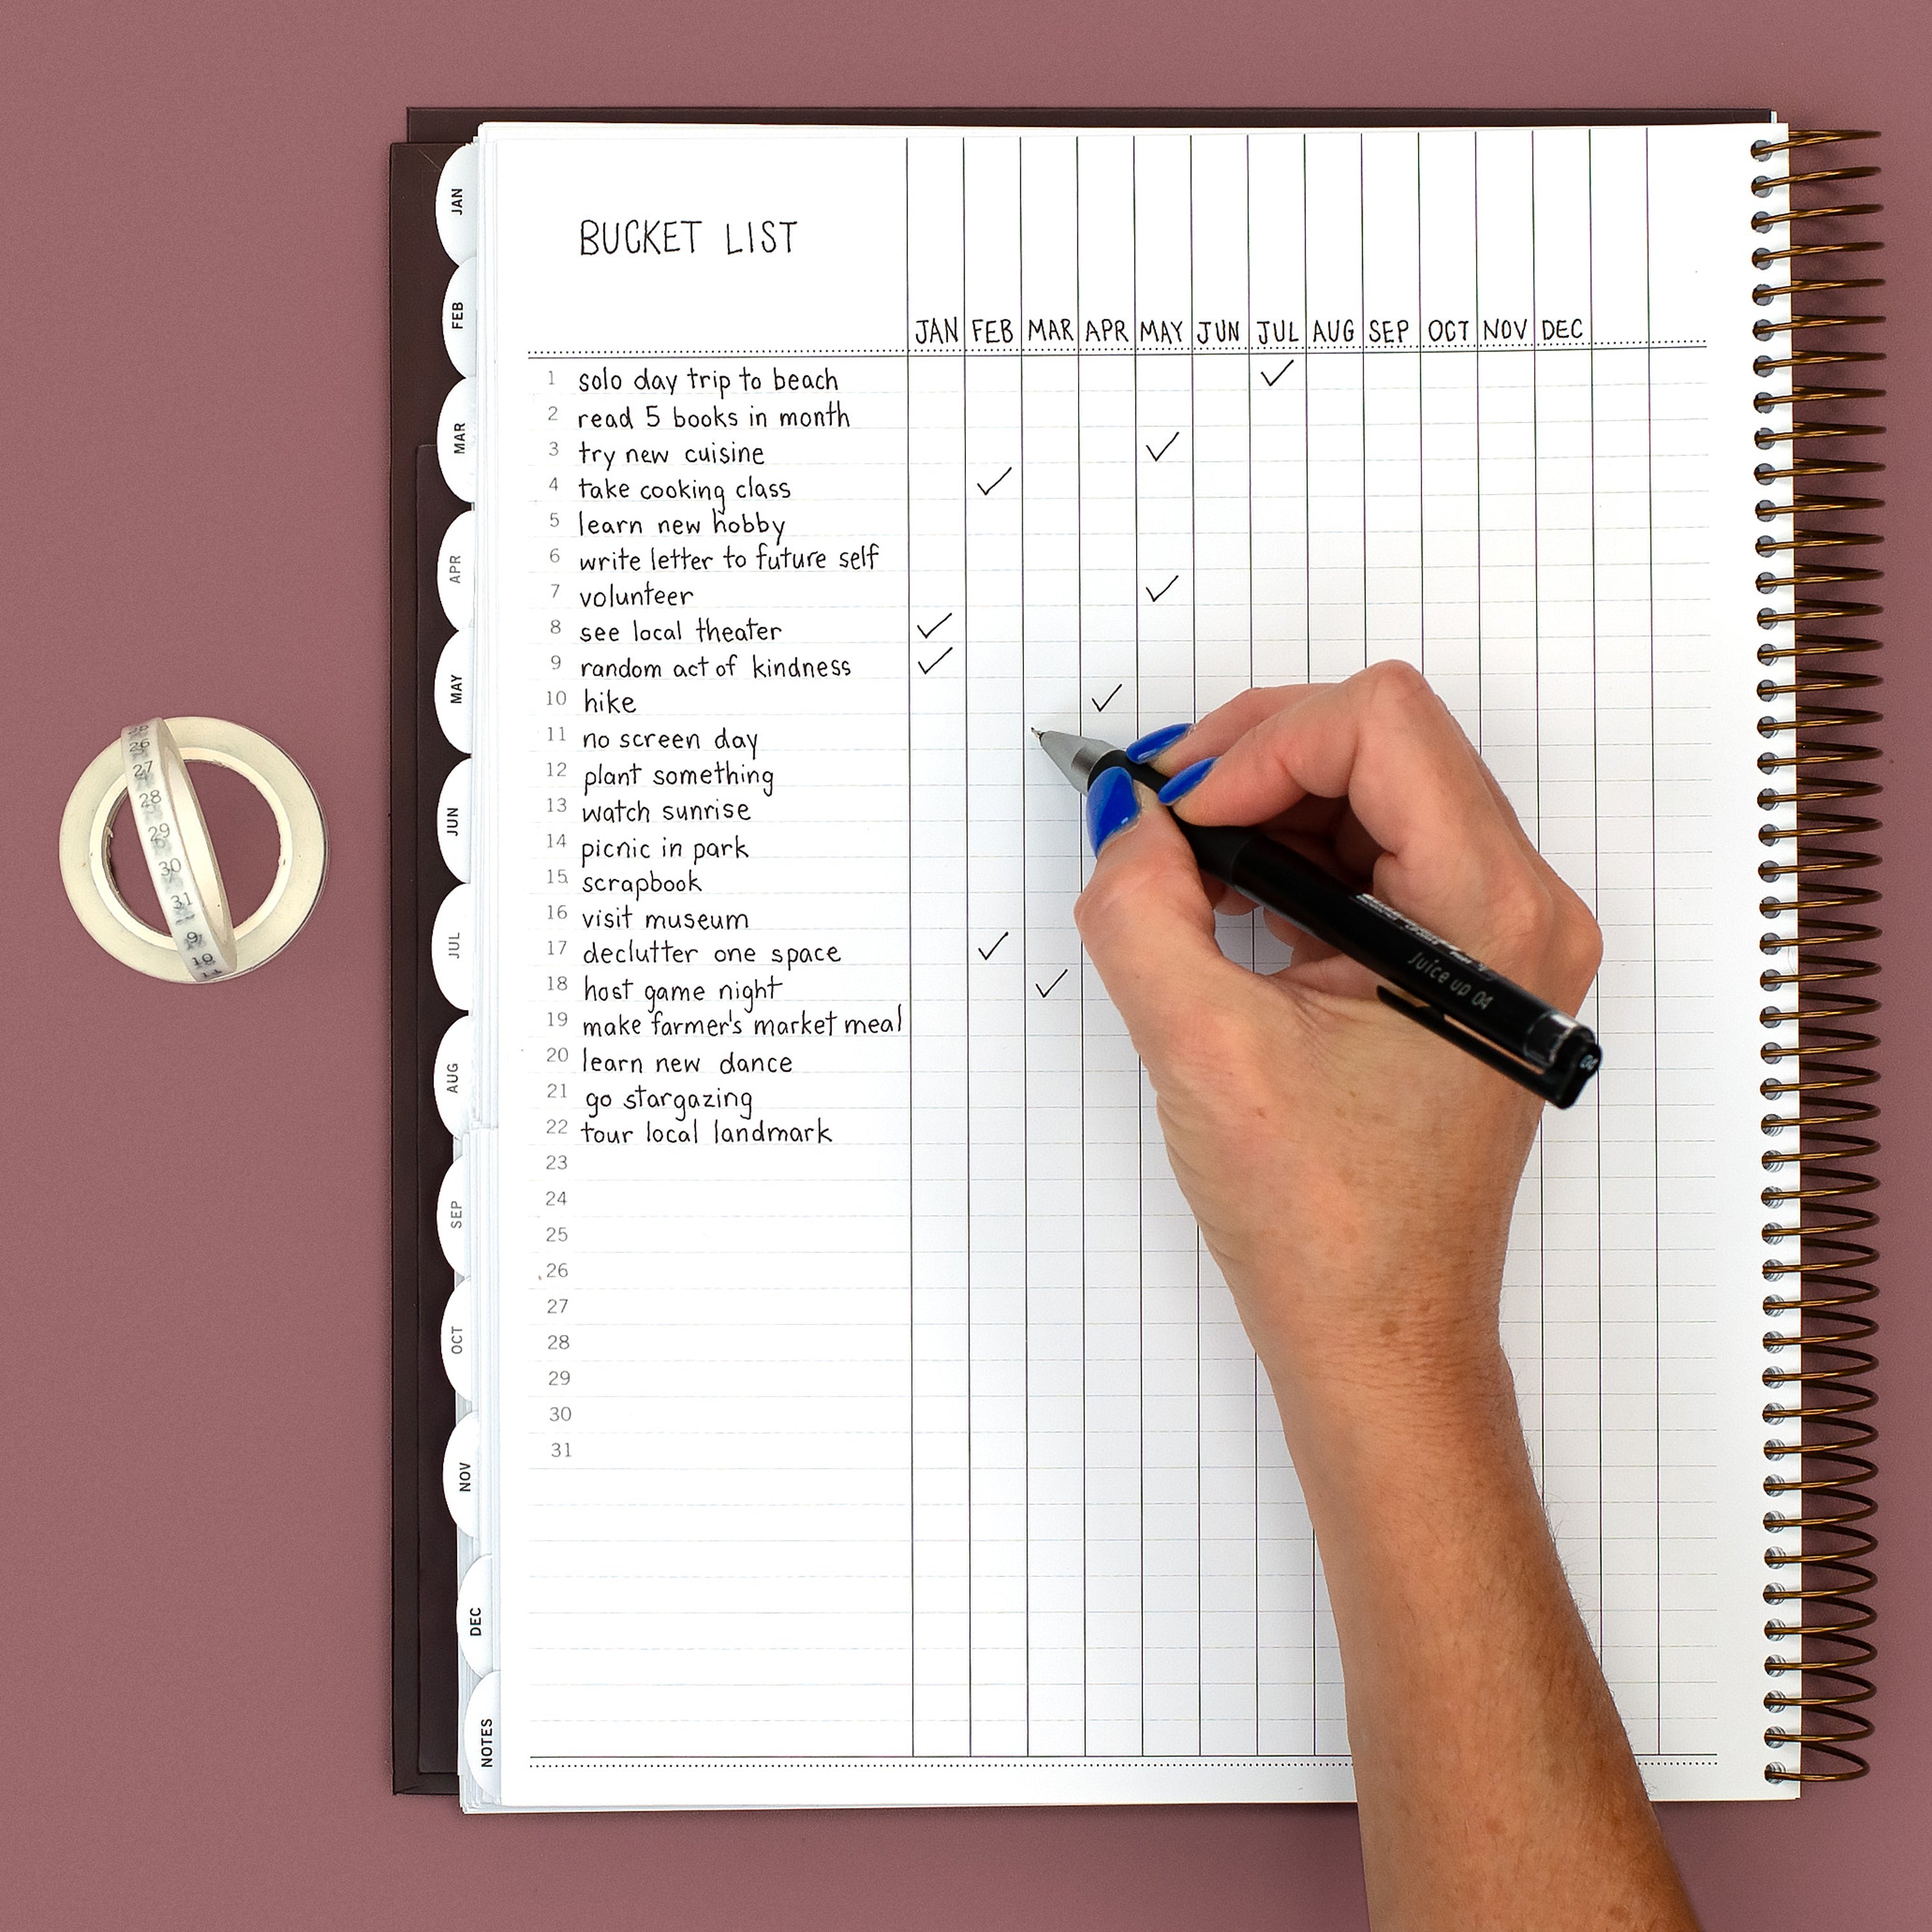 BUCKET LIST
JAN FEB MAR APR MAY JUN JUL AUG SEP OCT NOV DEC
1 solo day trip to beach ✓
2 read 5 books in month
3 try new cuisine ✓
4 take cooking class ✓
5 learn new hobby
6 write letter to future self
7 volunteer ✓
8 see local theater ✓
9 random act of kindness ✓
10 hike ✓
11 no screen day
12 plant something
13 watch sunrise
14 picnic in park
15 scrapbook
16 visit museum
17 declutter one space ✓
18 host game night ✓
19 make farmer's market meal
20 learn new dance
21 go stargazing
22 tour local landmark
23
24
25
26
27
28
29
30
31
JAN
FEB
MAR
APR
MAY
JUN
JUL
AUG
SEP
OCT
NOV
DEC
NOTES
26
27
28
29
30
31
9
10
11
Juice up 04
04